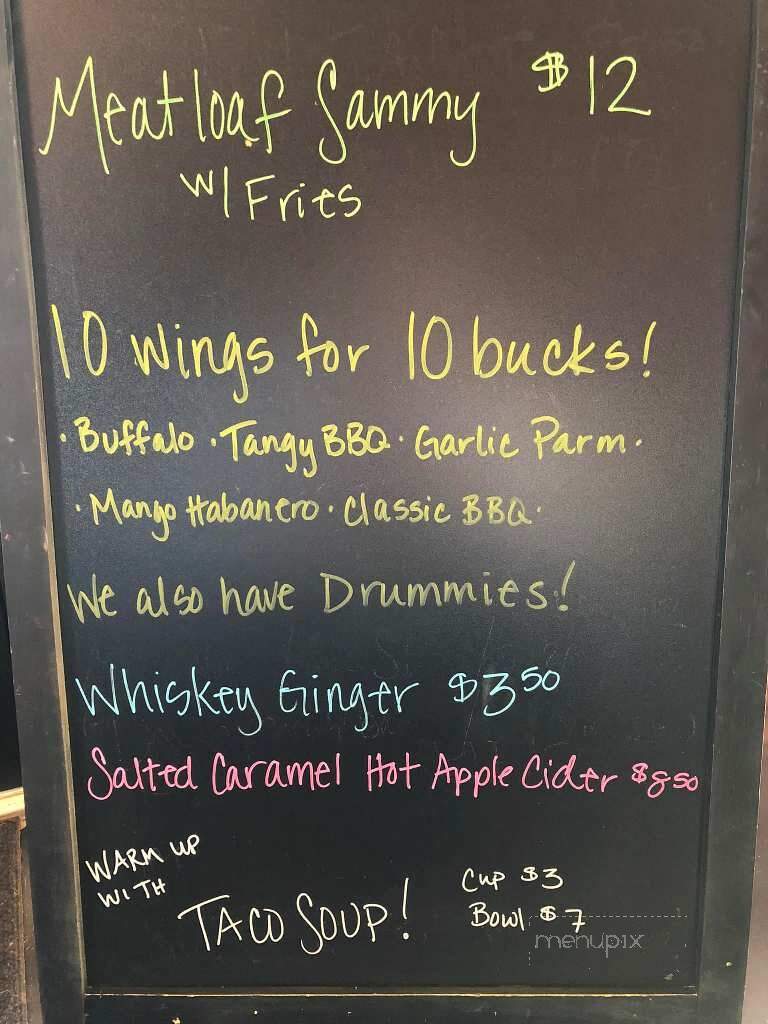 Meatloaf Sammy $12
w/ Fries
10 Wings for 10 bucks!
· Buffalo · Tangy BBQ · Garlic Parm ·
· Mango Habanero · Classic BBQ ·
We also have Drummies!
Whiskey Ginger $3 50
Salted Caramel Hot Apple Cider $8 50
WARM UP
WITH
TACO SOUP!
Cup $3
Bowl $7
menupix